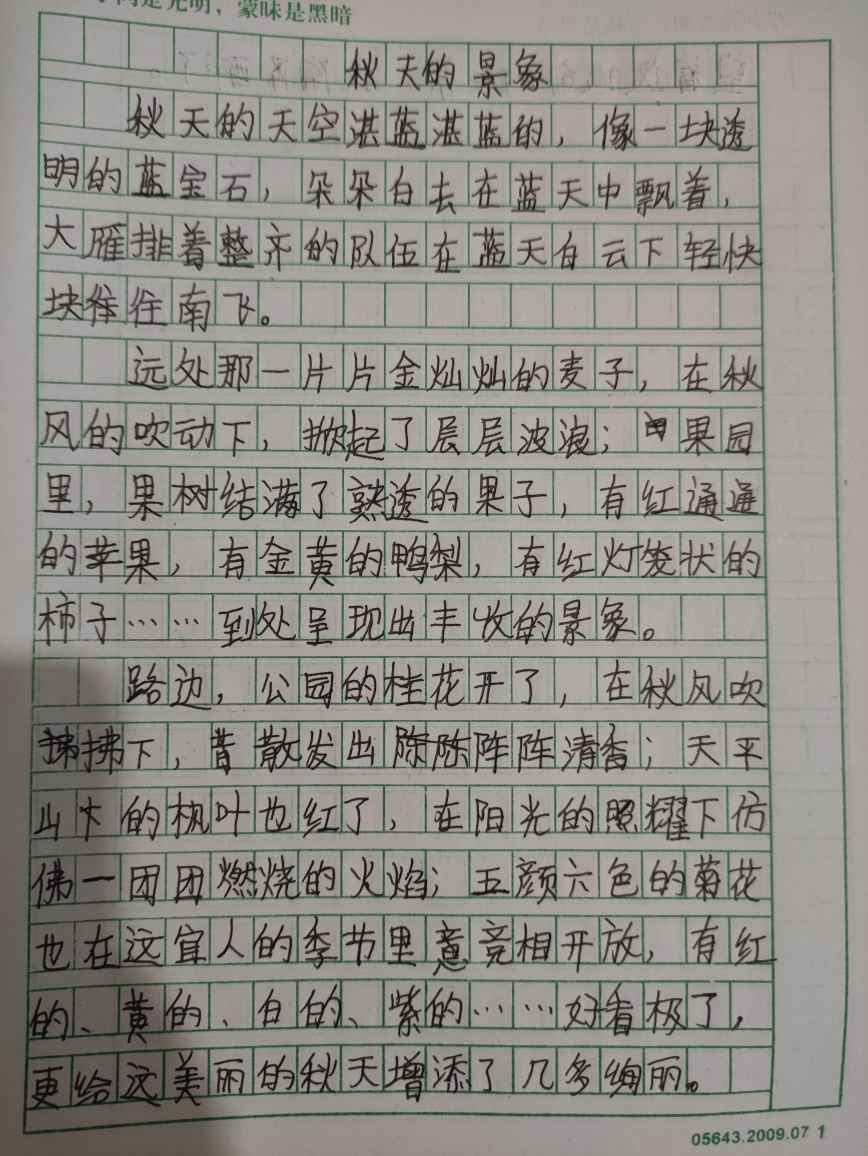 是光明，蒙昧是黑暗
秋天的景象
秋天的天空湛蓝湛蓝的，像一块透
明的蓝宝石，朵朵白去在蓝天中飘着，
大雁排着整齐的队伍在蓝天白云下轻快
块往南飞。
远处那一片片金灿灿的麦子，在秋
风的吹动下，掀起了层层波浪；果园
里，果树结满了熟透的果子，有红通通
的苹果，有金黄的鸭梨，有红灯笼状的
柿子……到处呈现出丰收的景象。
路边，公园的桂花开了，在秋风吹
拂下，散发出陈阵阵清香；天平
山下的枫叶也红了，在阳光的照耀下仿
佛一团团燃烧的火焰；五颜六色的菊花
也在这宜人的季节里竞相开放，有红
的、黄的、白的、紫的……好看极了，
更给这美丽的秋天增添了几多绚丽。
05643.2009.07 1